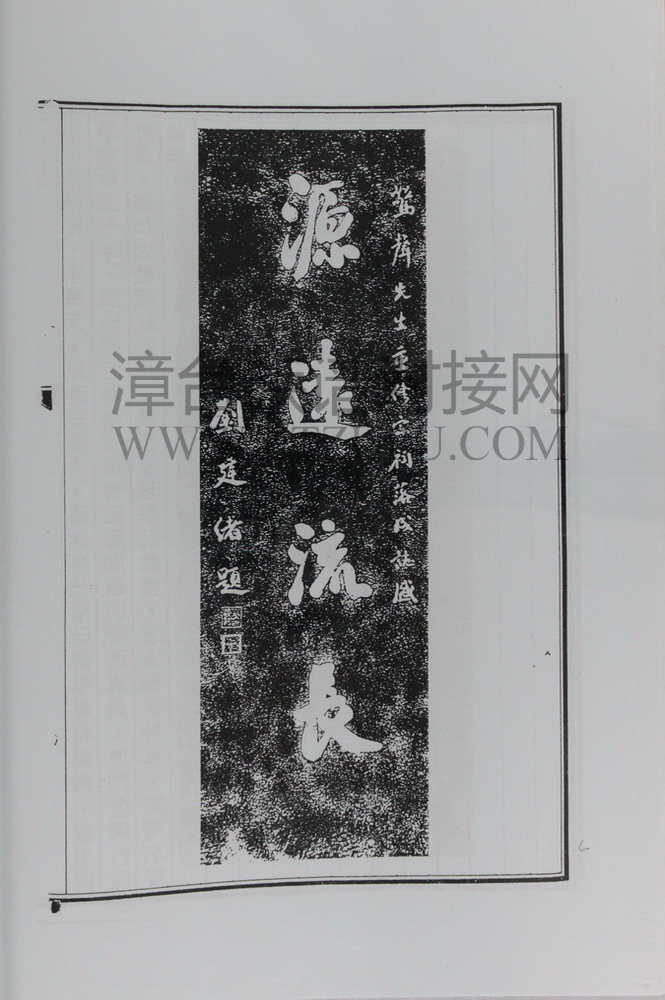 先生重修宗祠落成誌盛
源遠流長
劉建緒題
漳台族谱对接网
WWW.ZTZUPU.COM
6